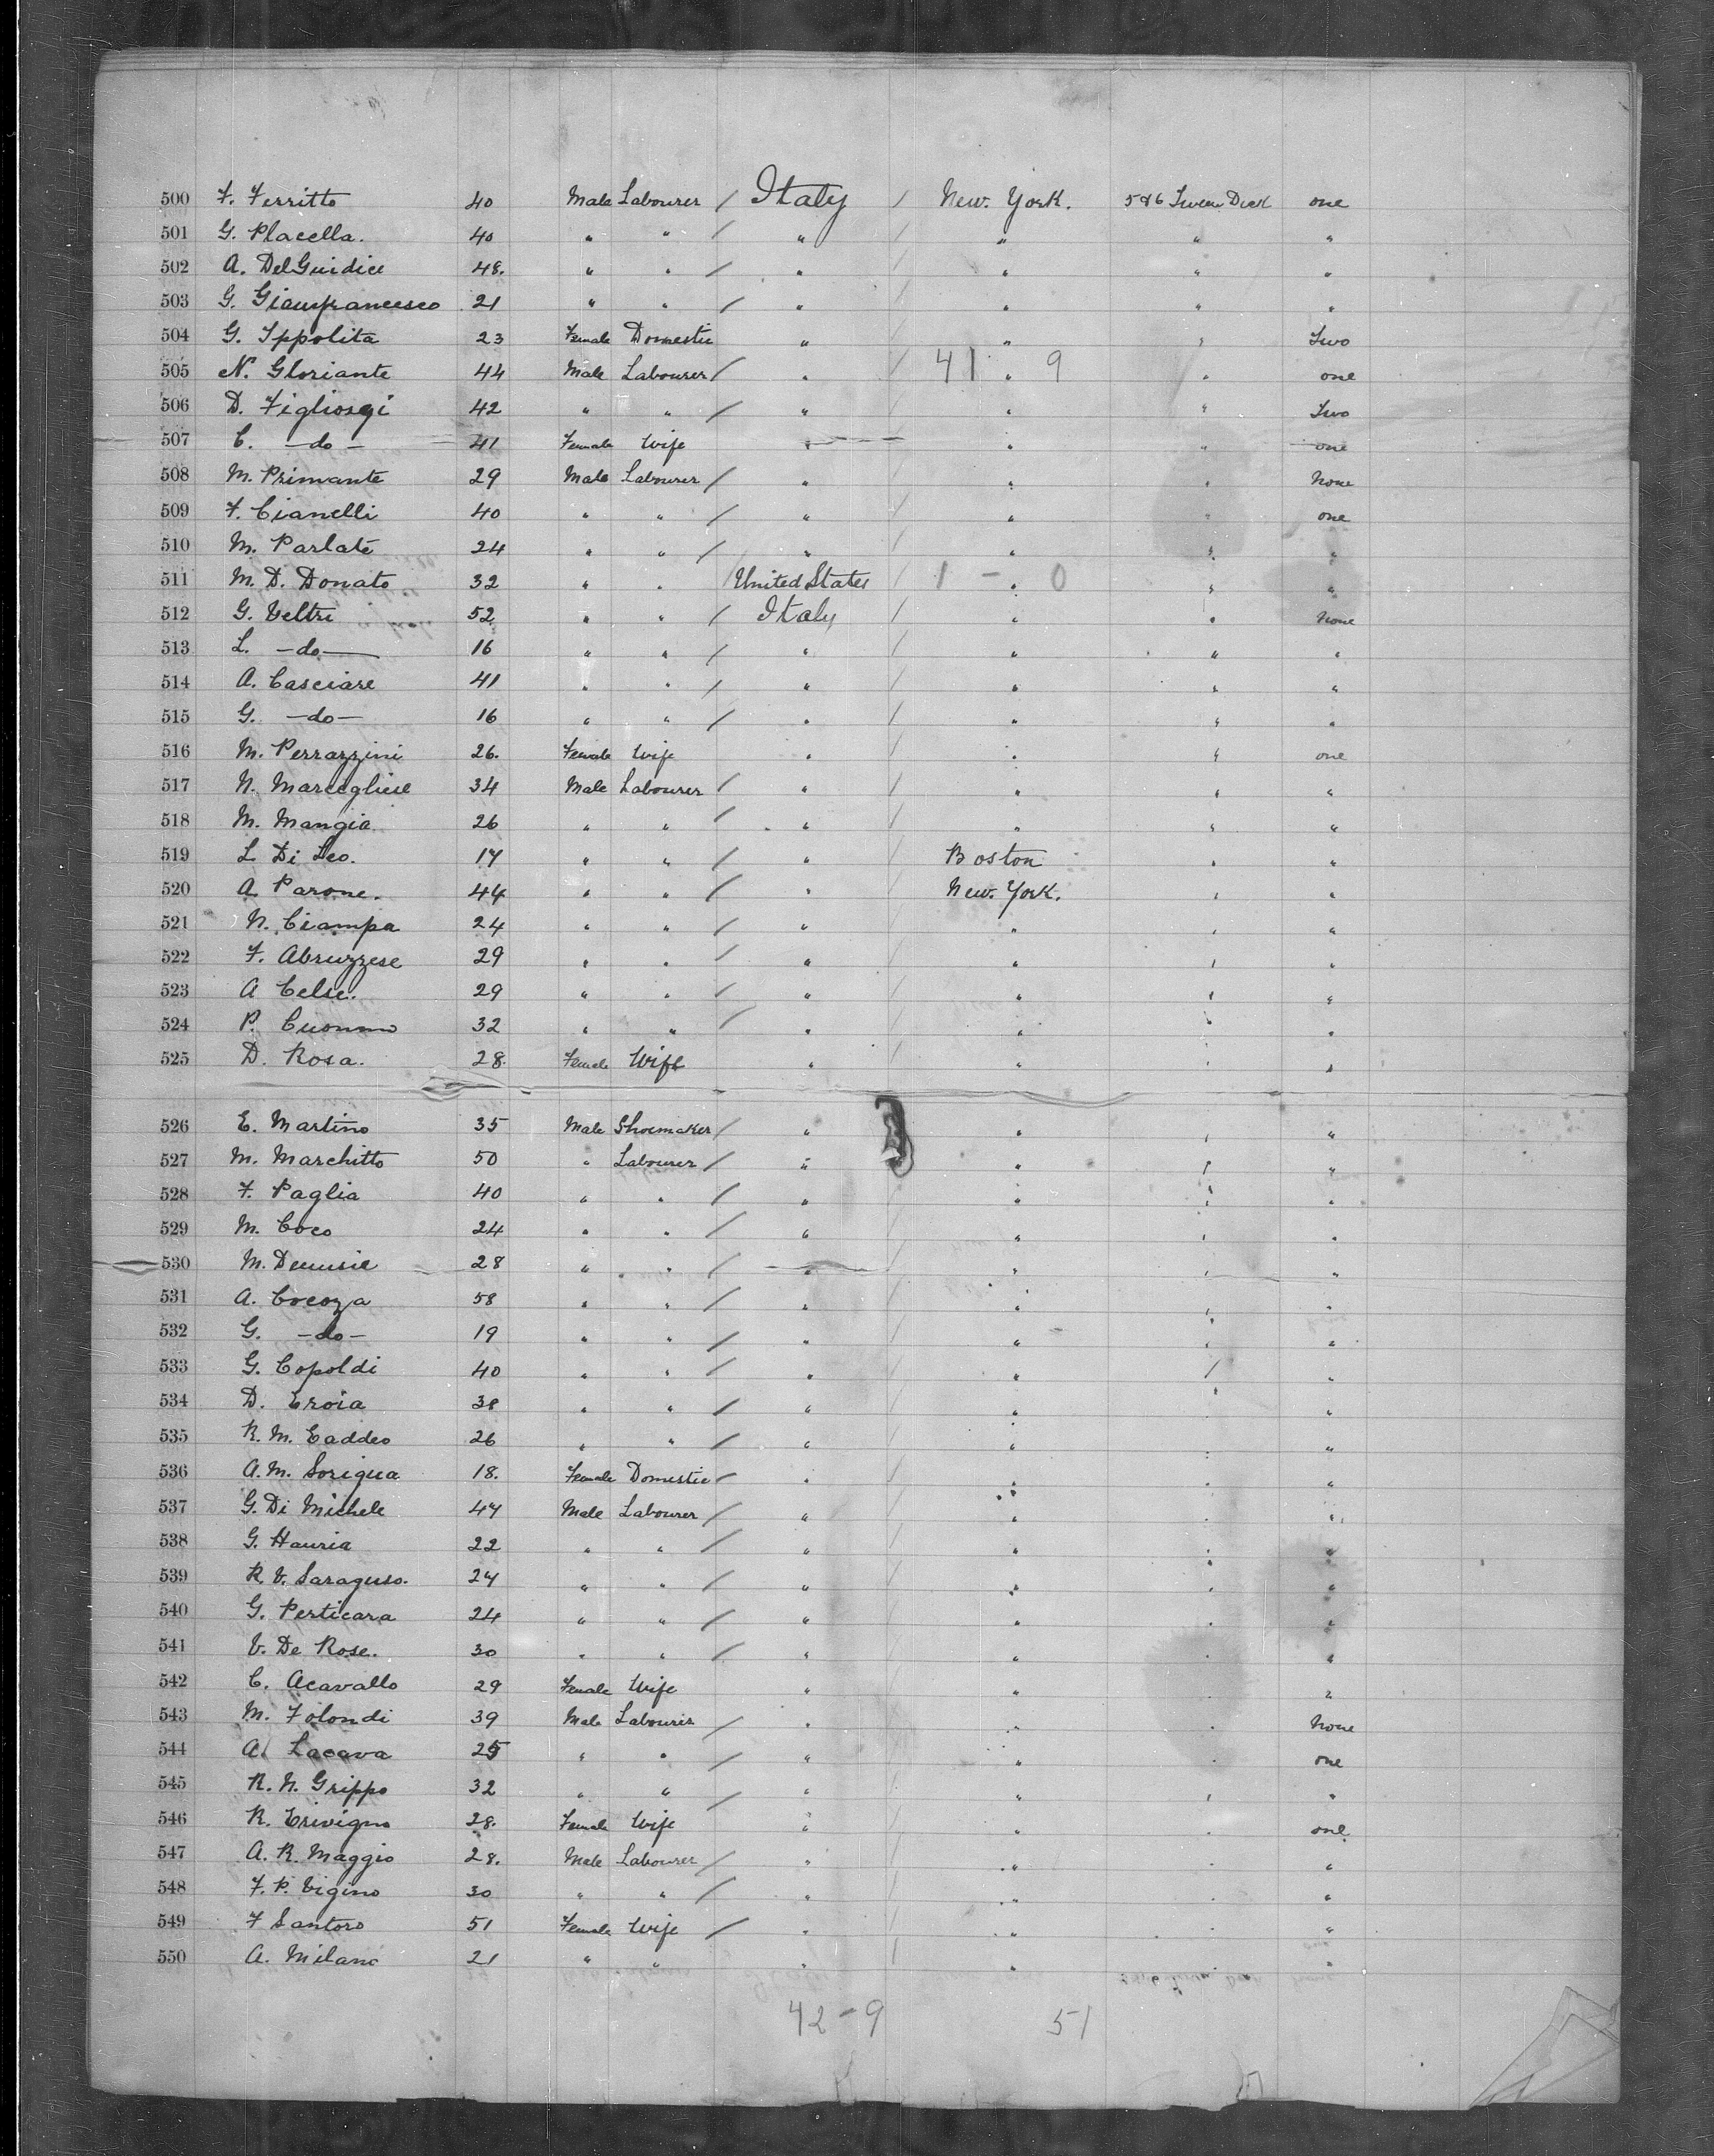 500 F. Ferritto 40 Male Labourer / Italy / New. York. 5 & 6 Tween Deck one
501 G. Placella. 40 " " / " / " " "
502 A. DelGuidice 48. " " / " / " " "
503 G. Gianfrancesco 21 " " / " / " " "
504 G. Ippolita 23 Female Domestic " " " Two
505 N. Gloriante 44 Male Labourer / " / 41 " 9 " one
506 D. Figliosgi 42 " " / " / " " Two
507 C. -do- 41 Female Wife " " " one
508 M. Primante 29 Male Labourer / " / " " None
509 F. Cianelli 40 " " / " / " " one
510 M. Parlate 24 " " / " / " " "
511 M. D. Donato 32 " " / United States / 1 - 0 " " "
512 G. Veltri 52 " " / Italy / " " None
513 L. -do- 16 " " / " / " " "
514 A. Casciare 41 " " / " / " " "
515 G. -do- 16 " " / " / " " "
516 M. Perrazzini 26. Female Wife " / " " one
517 N. Marcegliese 34 Male Labourer / " / " " "
518 M. Mangia 26 " " / " / " " "
519 L Di Leo. 17 " " / " / Boston " "
520 A. Parone. 44 " " / " / New. York. " "
521 N. Ciampa 24 " " / " / " " "
522 F. Abruzzese 29 " " / " / " " "
523 A Celse. 29 " " / " / " " "
524 P. Cuommo 32 " " / " / " " "
525 D. Rosa. 28. Female Wife " " " "
526 E. Martino 35 Male Shoemaker / " " " "
527 M. Marchitto 50 " Labourer / " " " "
528 F. Paglia 40 " " / " / " " "
529 M. Coco 24 " " / " / " " "
530 M. 28 " " / " / " " "
531 A. Cocoza 58 " " / " / " " "
532 G. -do- 19 " " / " / " " "
533 G. Copoldi 40 " " / " / " " "
534 D. Eroia 38 " " / " / " " "
535 R. M. Taddeo 26 " " / " / " " "
536 A. M. Sorigua 18. Female Domestic / " / " " "
537 G. Di Michele 47 Male Labourer / " / " " "
538 G. Hauria 22 " " / " / " " "
539 R. V. Saraguso. 27 " " / " / " " "
540 G. Perticara 24 " " / " / " " "
541 V. De Rose. 30 " " / " / " " "
542 C. Acavallo 29 Female Wife " / " " "
543 M. Folondi 39 Male Labourer / " / " " None
544 A. Lacava 25 " " / " / " " one
545 R. N. Grippo 32 " " / " / " " "
546 R. Trivigno 28. Female Wife " / " " one
547 A. R. Maggio 28. Male Labourer / " / " " "
548 F. P. Vigino 30 " " / " / " " "
549 F Santoro 51 Female Wife / " / " " "
550 A. Milano 21 " " " / " "
42 - 9 51